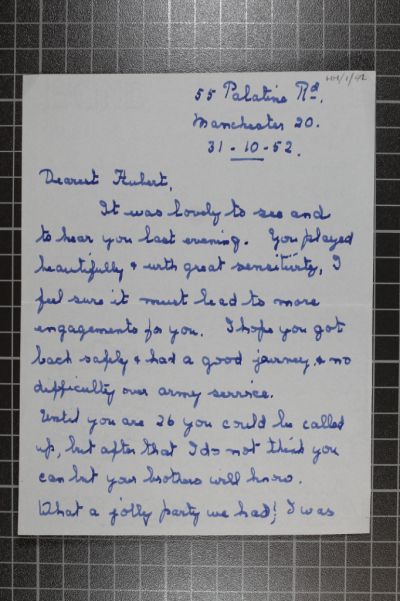 HH/1/92
55 Palatine Rd.
Manchester 20.
31-10-52.
Dearest Hubert,
It was lovely to see and
to hear you last evening. You played
beautifully & with great sensitivity, I
feel sure it must lead to more
engagements for you. I hope you got
back safely & had a good journey, & no
difficulty over army service.
Until you are 26 you could be called
up, but after that I do not think you
can but your brothers will know.
What a jolly party we had! I was